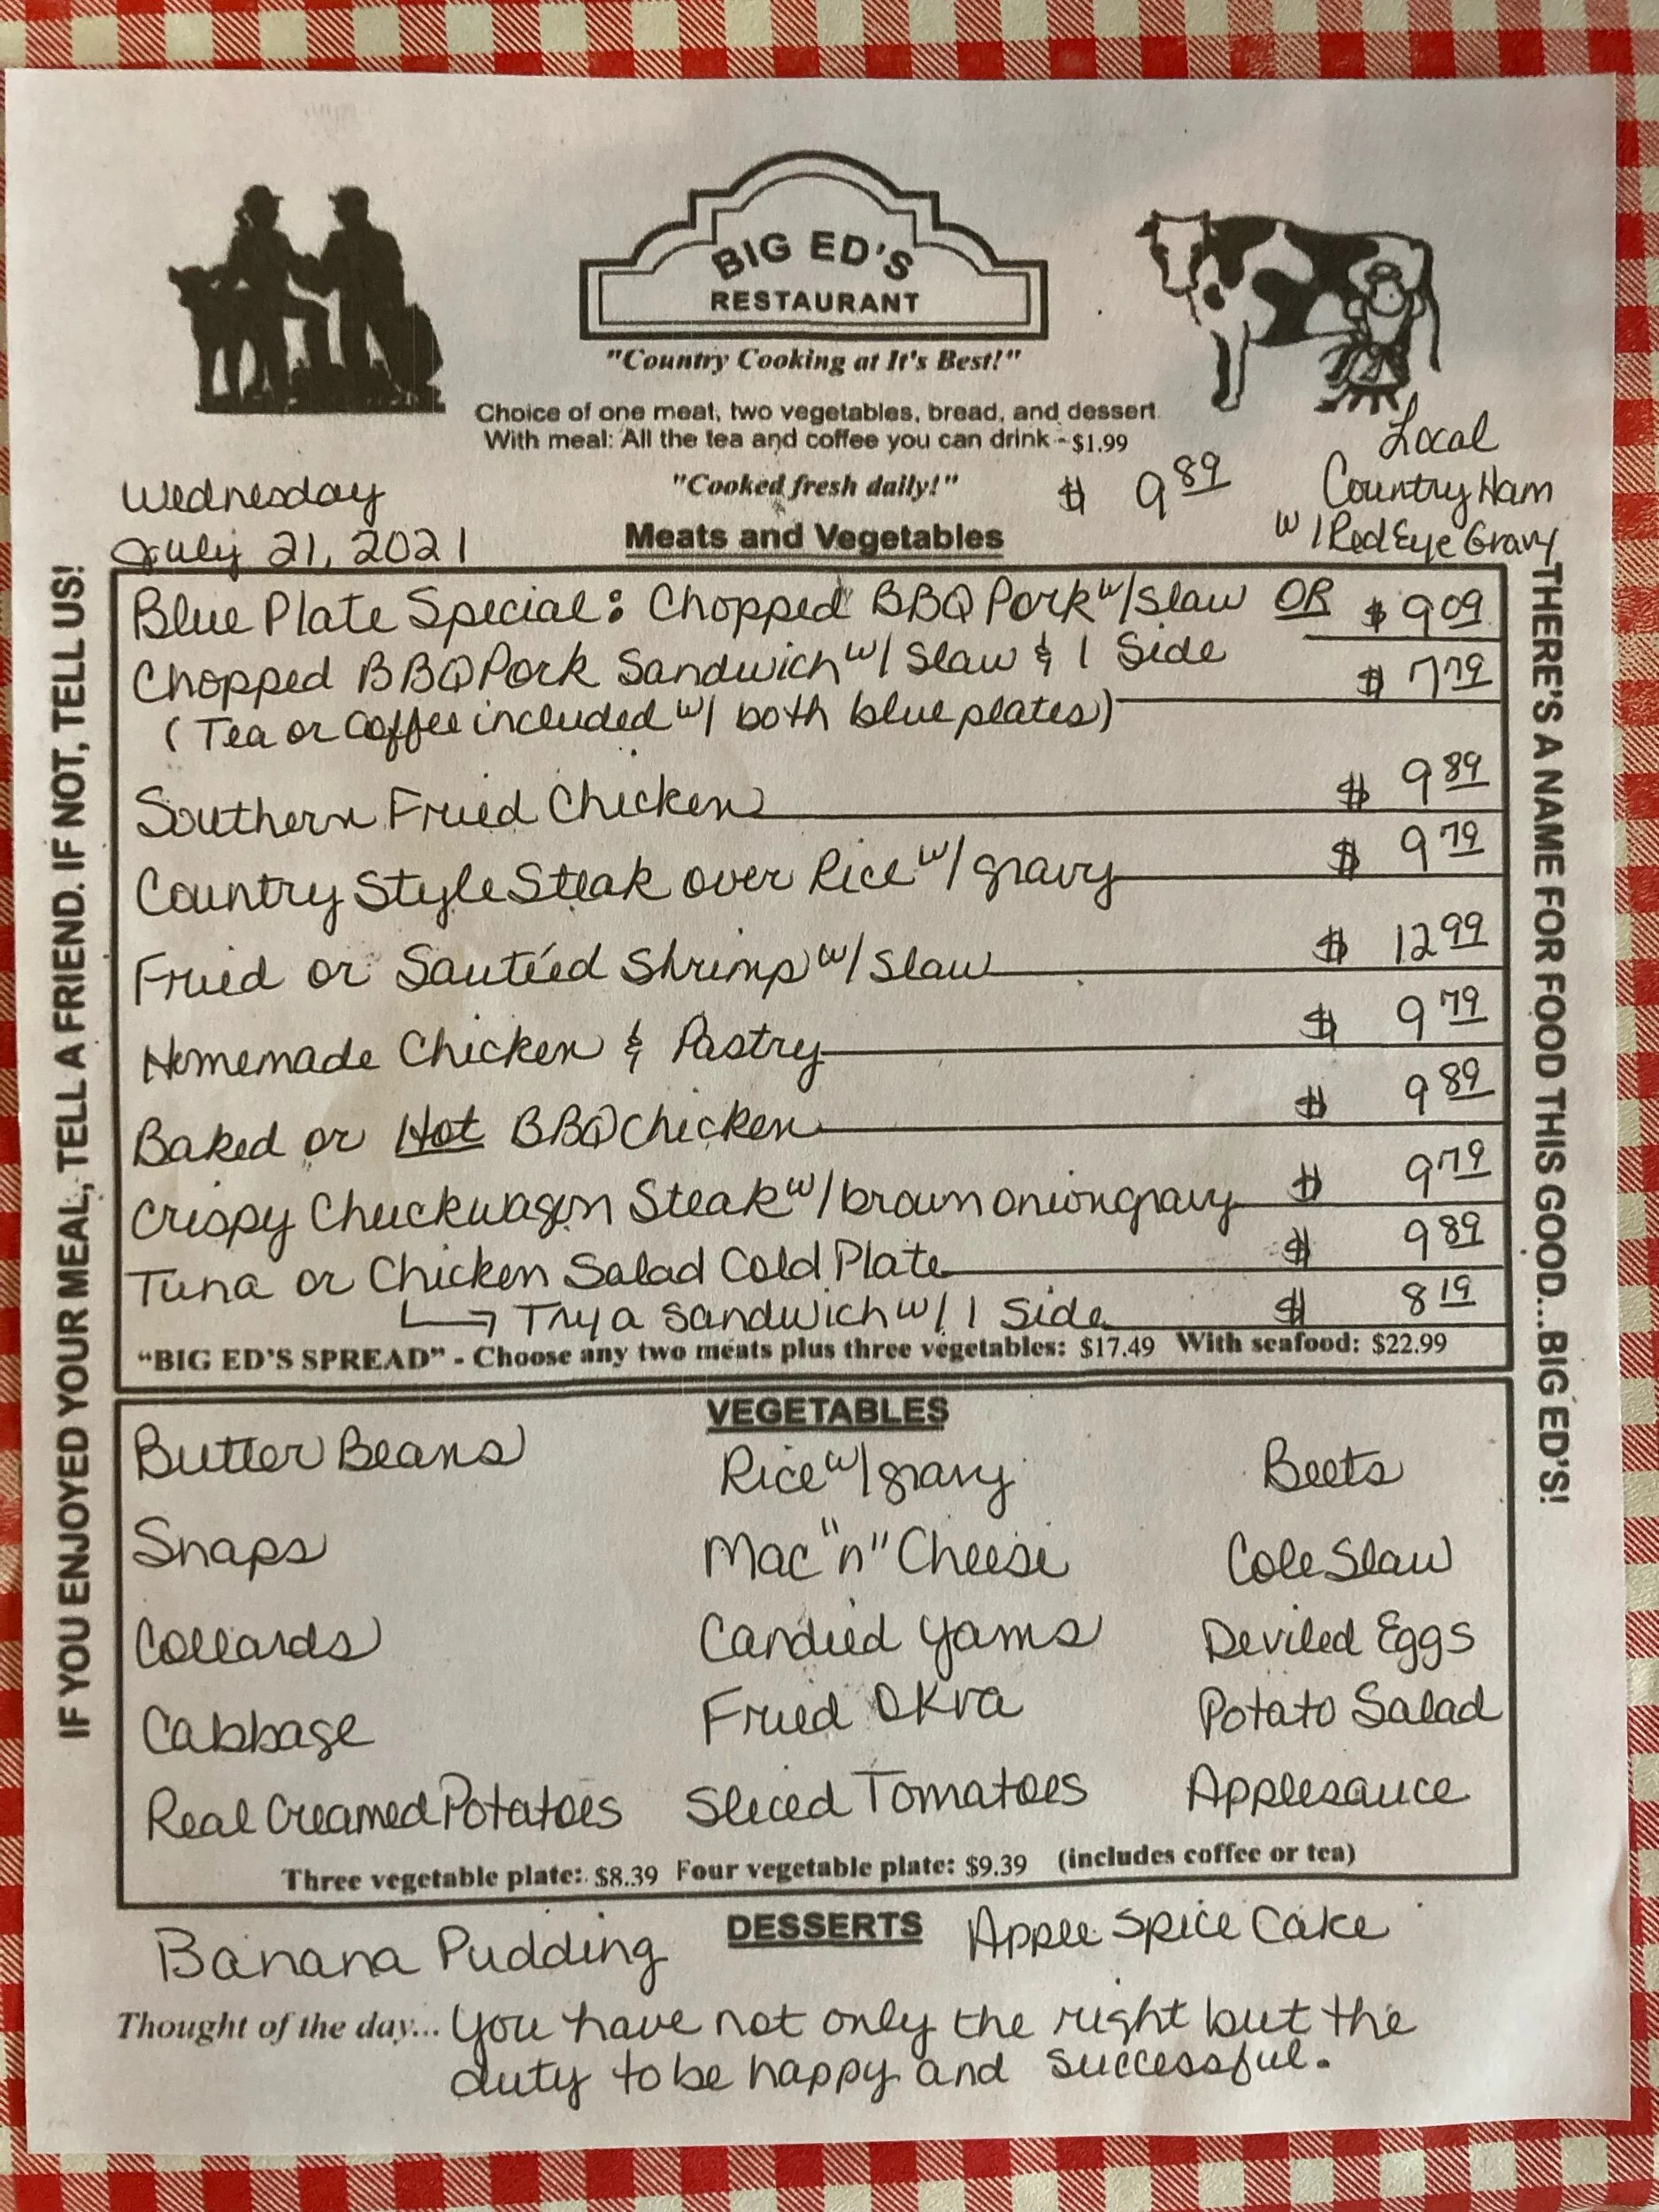 BIG ED'S
RESTAURANT
"Country Cooking at It's Best!"
Choice of one meat, two vegetables, bread, and dessert.
With meal: All the tea and coffee you can drink - $1.99
"Cooked fresh daily!"
$ 9 89
Local
Country Ham
w/ Red Eye Gravy
Wednesday
July 21, 2021
Meats and Vegetables
Blue Plate Special: Chopped BBQ Pork w/ Slaw OR $ 9 09
Chopped BBQ Pork Sandwich w/ Slaw & 1 Side $ 7 79
(Tea or Coffee included w/ both blue plates)
Southern Fried Chicken $ 9 89
Country Style Steak over Rice w/ gravy $ 9 79
Fried or Sauteéd Shrimp w/ Slaw $ 12 99
Homemade Chicken & Pastry $ 9 79
Baked or Hot BBQ Chicken $ 9 89
Crispy Chuckwagon Steak w/ brown onion gravy $ 9 79
Tuna or Chicken Salad Cold Plate $ 9 89
Try a sandwich w/ 1 Side $ 8 19
"BIG ED'S SPREAD" - Choose any two meats plus three vegetables: $17.49 With seafood: $22.99
VEGETABLES
Butter Beans Rice w/ gravy Beets
Snaps Mac "n" Cheese Cole Slaw
Collards Candied Yams Deviled Eggs
Cabbage Fried Okra Potato Salad
Real Creamed Potatoes Sliced Tomatoes Applesauce
Three vegetable plate: $8.39 Four vegetable plate: $9.39 (includes coffee or tea)
DESSERTS
Banana Pudding Apple Spice Cake
Thought of the day... You have not only the right but the
duty to be happy and successful.
IF YOU ENJOYED YOUR MEAL, TELL A FRIEND. IF NOT, TELL US!
THERE'S A NAME FOR FOOD THIS GOOD...BIG ED'S!